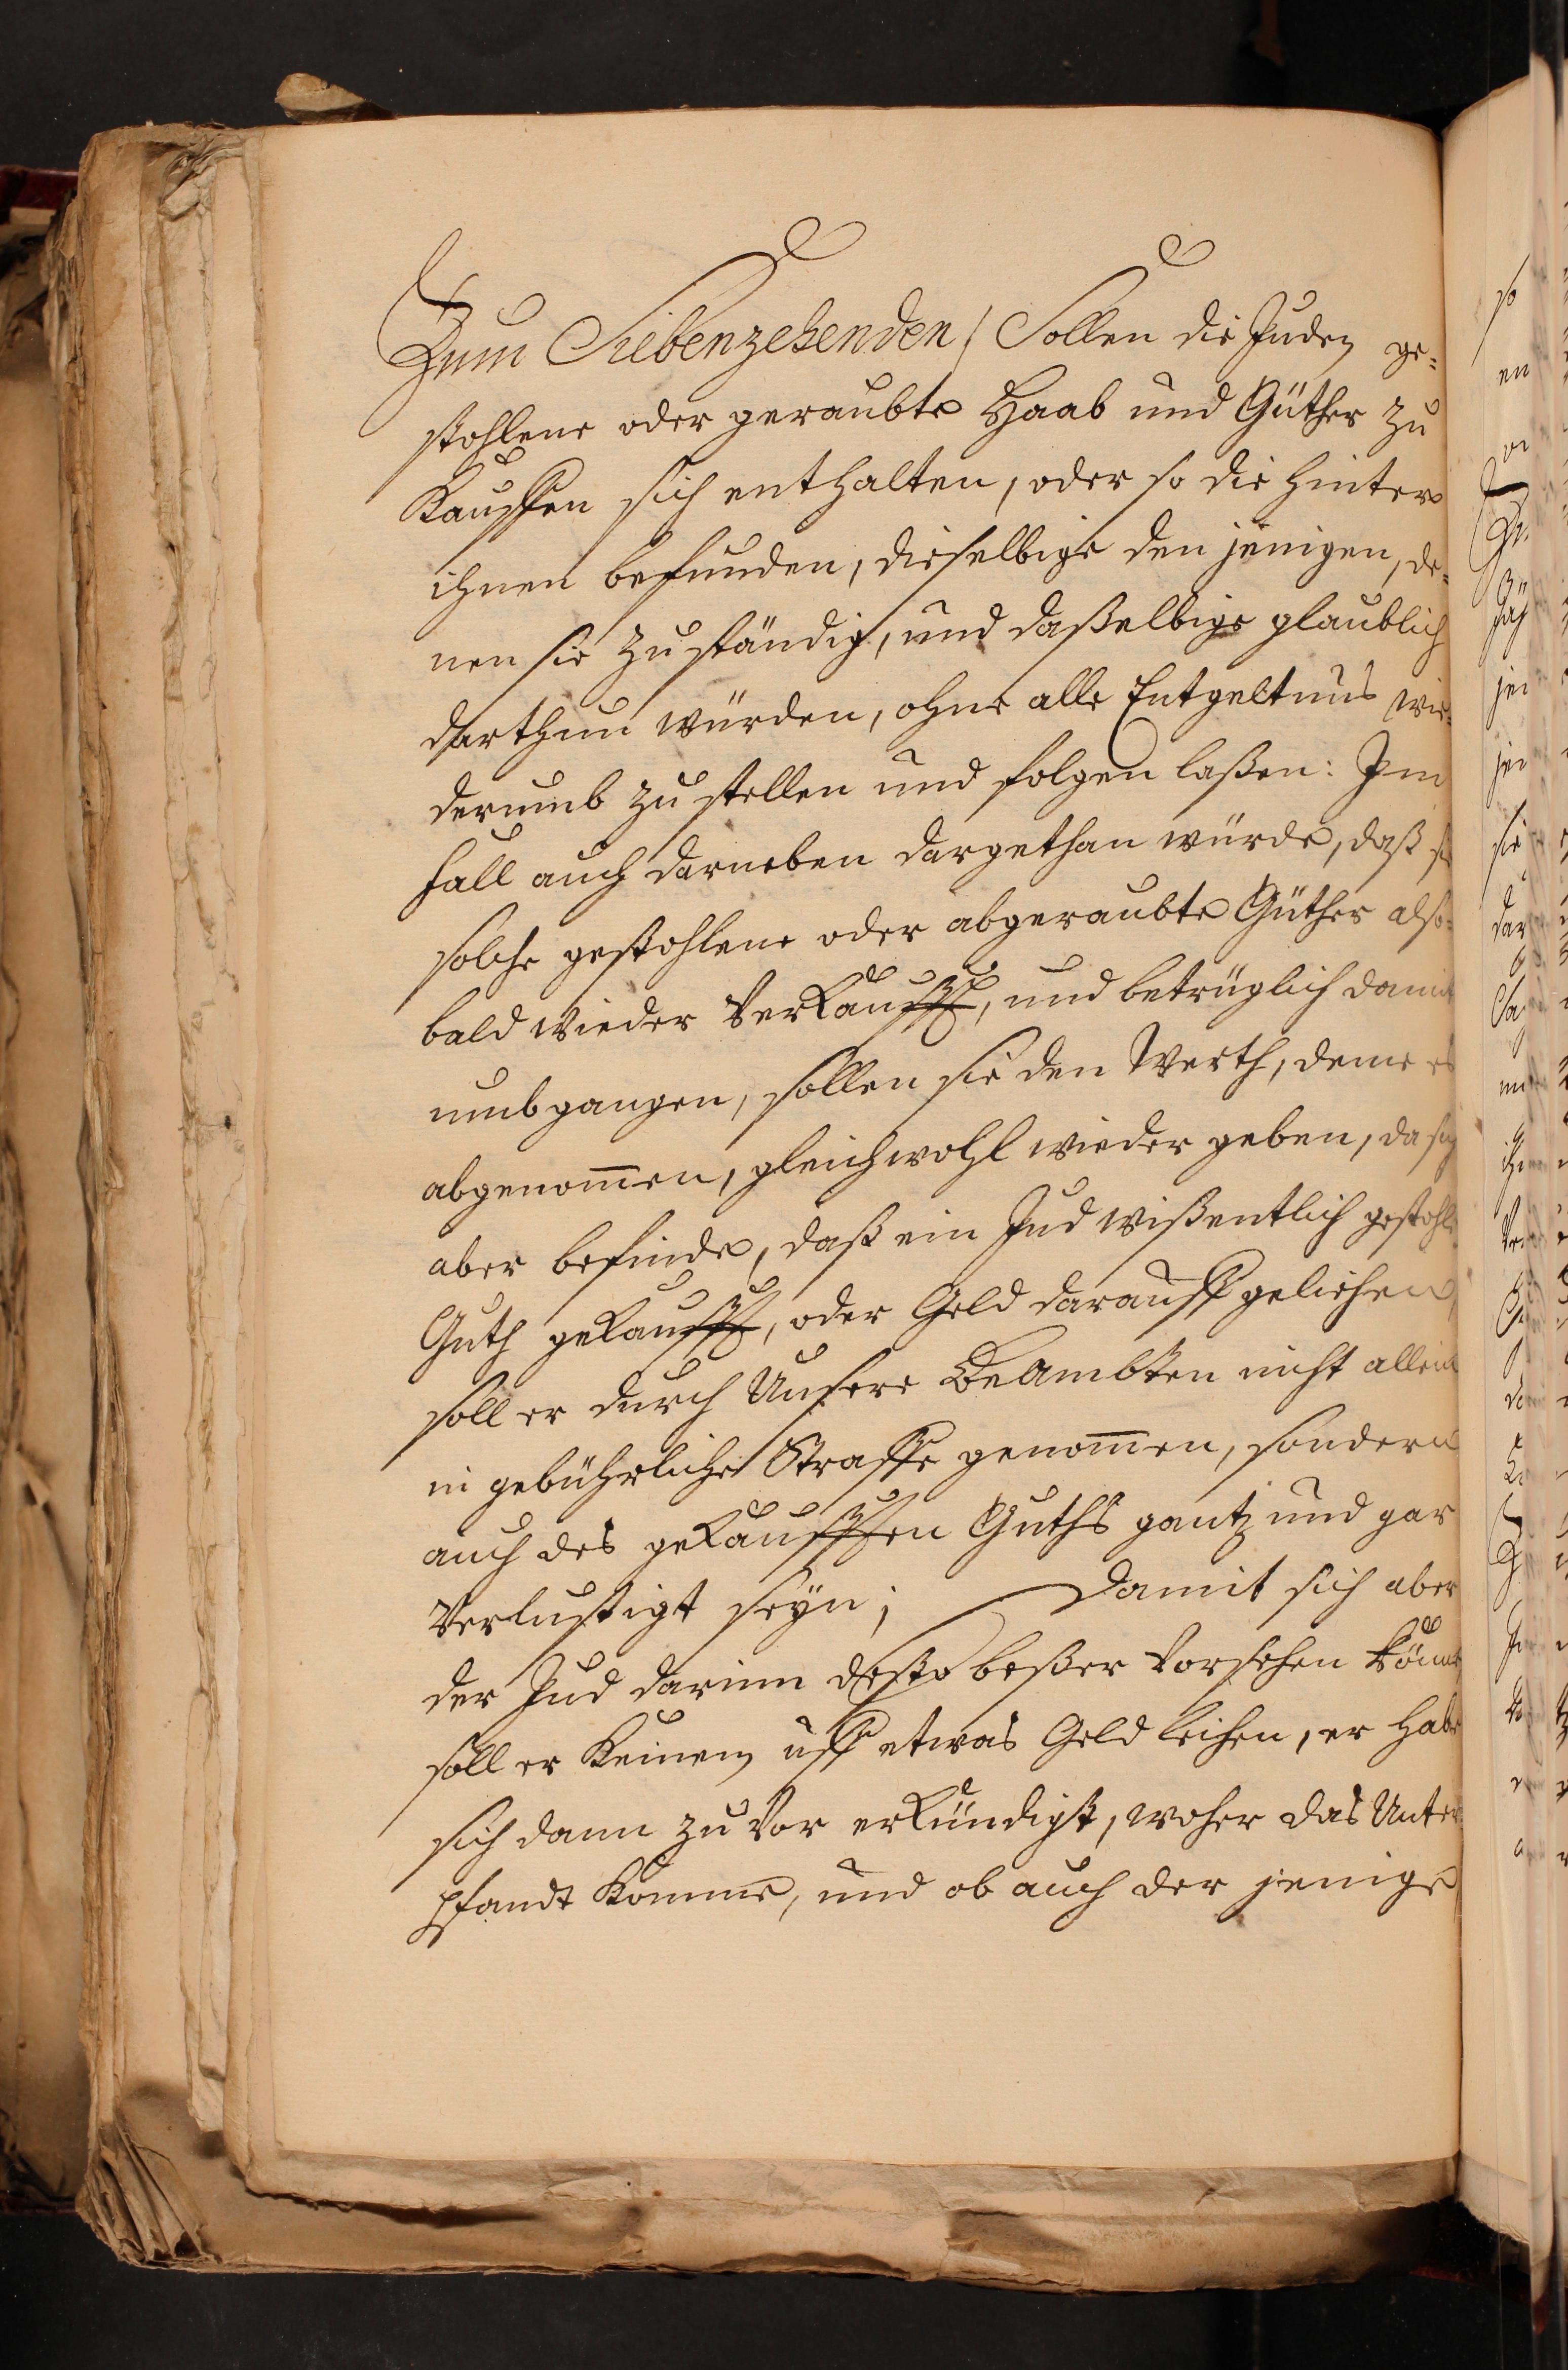 Zum Siebenzehenden / Sollen die Juden ge-
stohlene oder geraubte Haab und Güther zu
Kauffen sich enthalten, oder so die hinter
ihnen befunden, dieselbige den jenigen, de-
nen sie zuständig, und daßelbige glaublich
darthun würden, ohne alle Entgeltnus wie-
derumb zu stellen und folgen laßen: Im
fall auch darneben dargethan würde, daß sie
solche gestohlene oder abgeraubte Güther also-
bald wieder Verkaufft, und betrüglich damit
umbgangen, sollen sie den Werth, deme es
abgenom̅en, gleichwohl wieder geben, da sich
aber befinde, daß ein Jud wißentlich gestohle
Guth gekaufft, oder Geld darauff geliehen,
soll er durch Unsere Beambten nicht allein
in gebührliche Straffe genom̅en, sondern
auch des gekaufften Guths gantz und gar
Verlustigt seyn; Damit sich aber
der Jud darinn desto beßer Vorsehen könne
soll er Keinem uff etwas Geld leihen, er habe
sich dann zu Vor erkündigt, woher das Unter
pfandt Komme, und ob auch der jenige